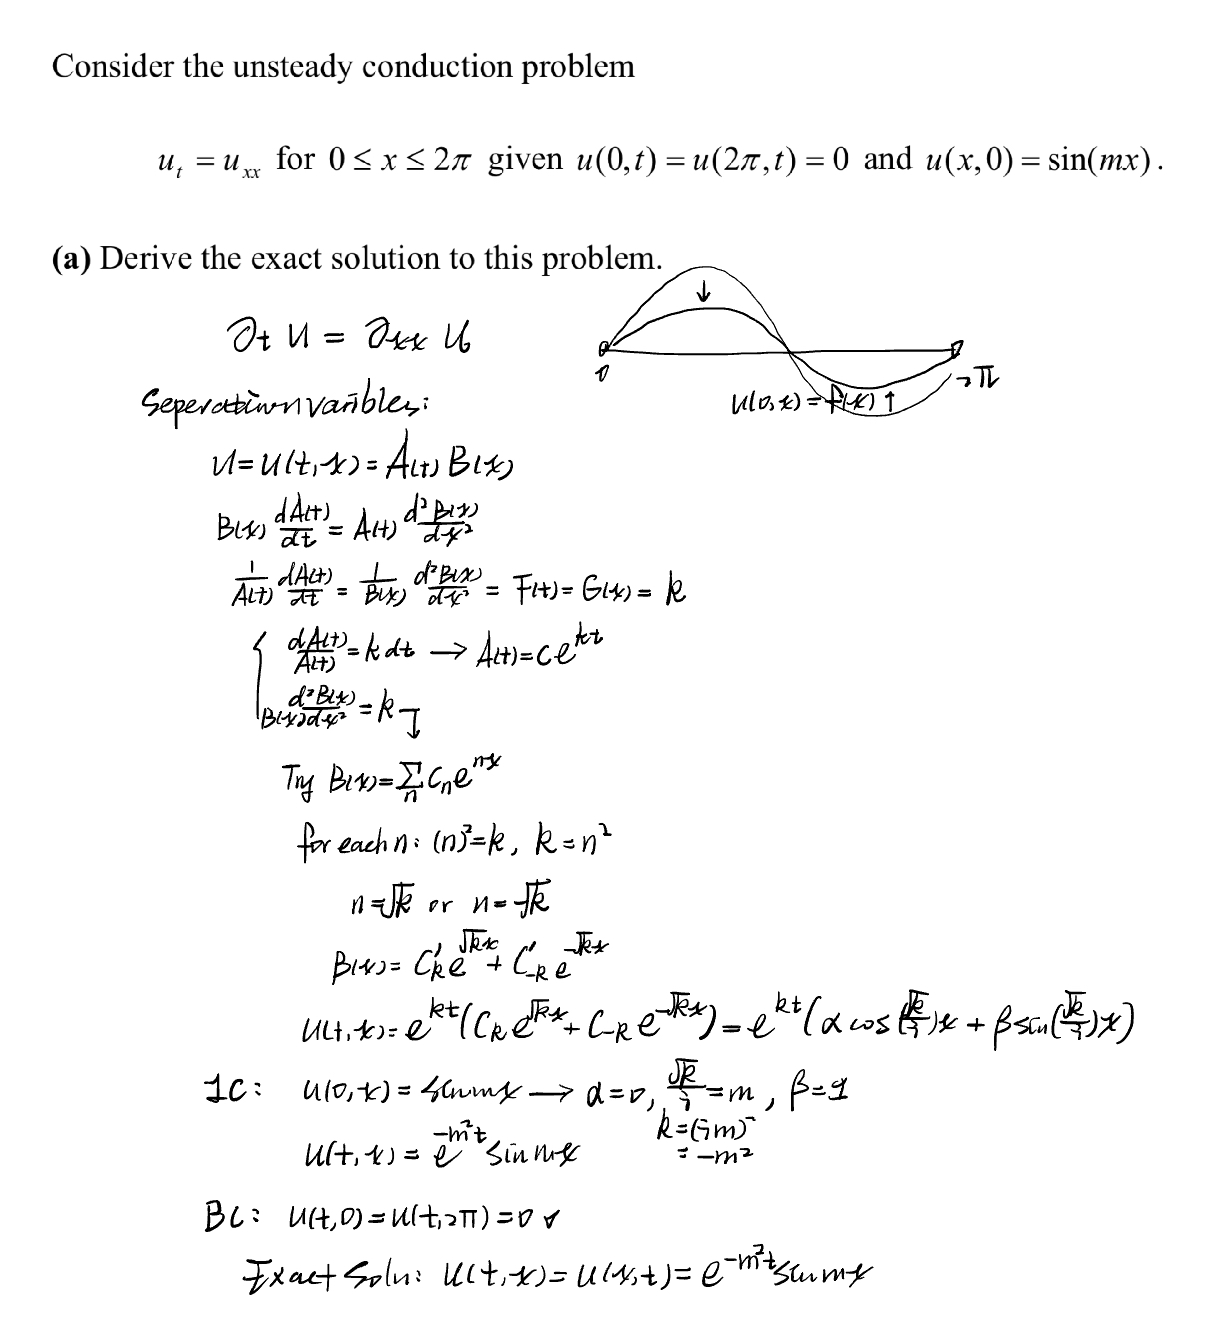 Consider the unsteady conduction problem
u_t = u_xx for 0 ≤ x ≤ 2π given u(0,t) = u(2π,t) = 0 and u(x,0) = sin(mx).
(a) Derive the exact solution to this problem.
∂t u = ∂xx u
0
2π
u(0,x) = f(x) ↑
Seperation variables:
u = u(t,x) = A(t) B(x)
B(x) dA(t)/dt = A(t) d²B(x)/dx²
1/A(t) dA(t)/dt = 1/B(x) d²B(x)/dx² = F(t) = G(x) = k
{ dA(t)/A(t) = k dt → A(t) = ce^{kt}
d²B(x)/B(x)dx² = k
Try B(x) = Σ_n C_n e^{nx}
for each n: (n)² = k, k = n²
n = √k or n = -√k
B(x) = C'_k e^{√k x} + C'_{-k} e^{-√k x}
u(t,x) = e^{kt}(C_k e^{√k x} + C_{-k} e^{-√k x}) = e^{kt}(α cos(√k/i)x + β sin(√k/i)x)
IC: u(0,x) = sin mx → α = 0, √k/i = m, β = 1
k = (im)²
= -m²
u(t,x) = e^{-m²t} sin mx
BC: u(t,0) = u(t,2π) = 0 ✓
Exact Soln: u(t,x) = u(x,t) = e^{-m²t} sin mx